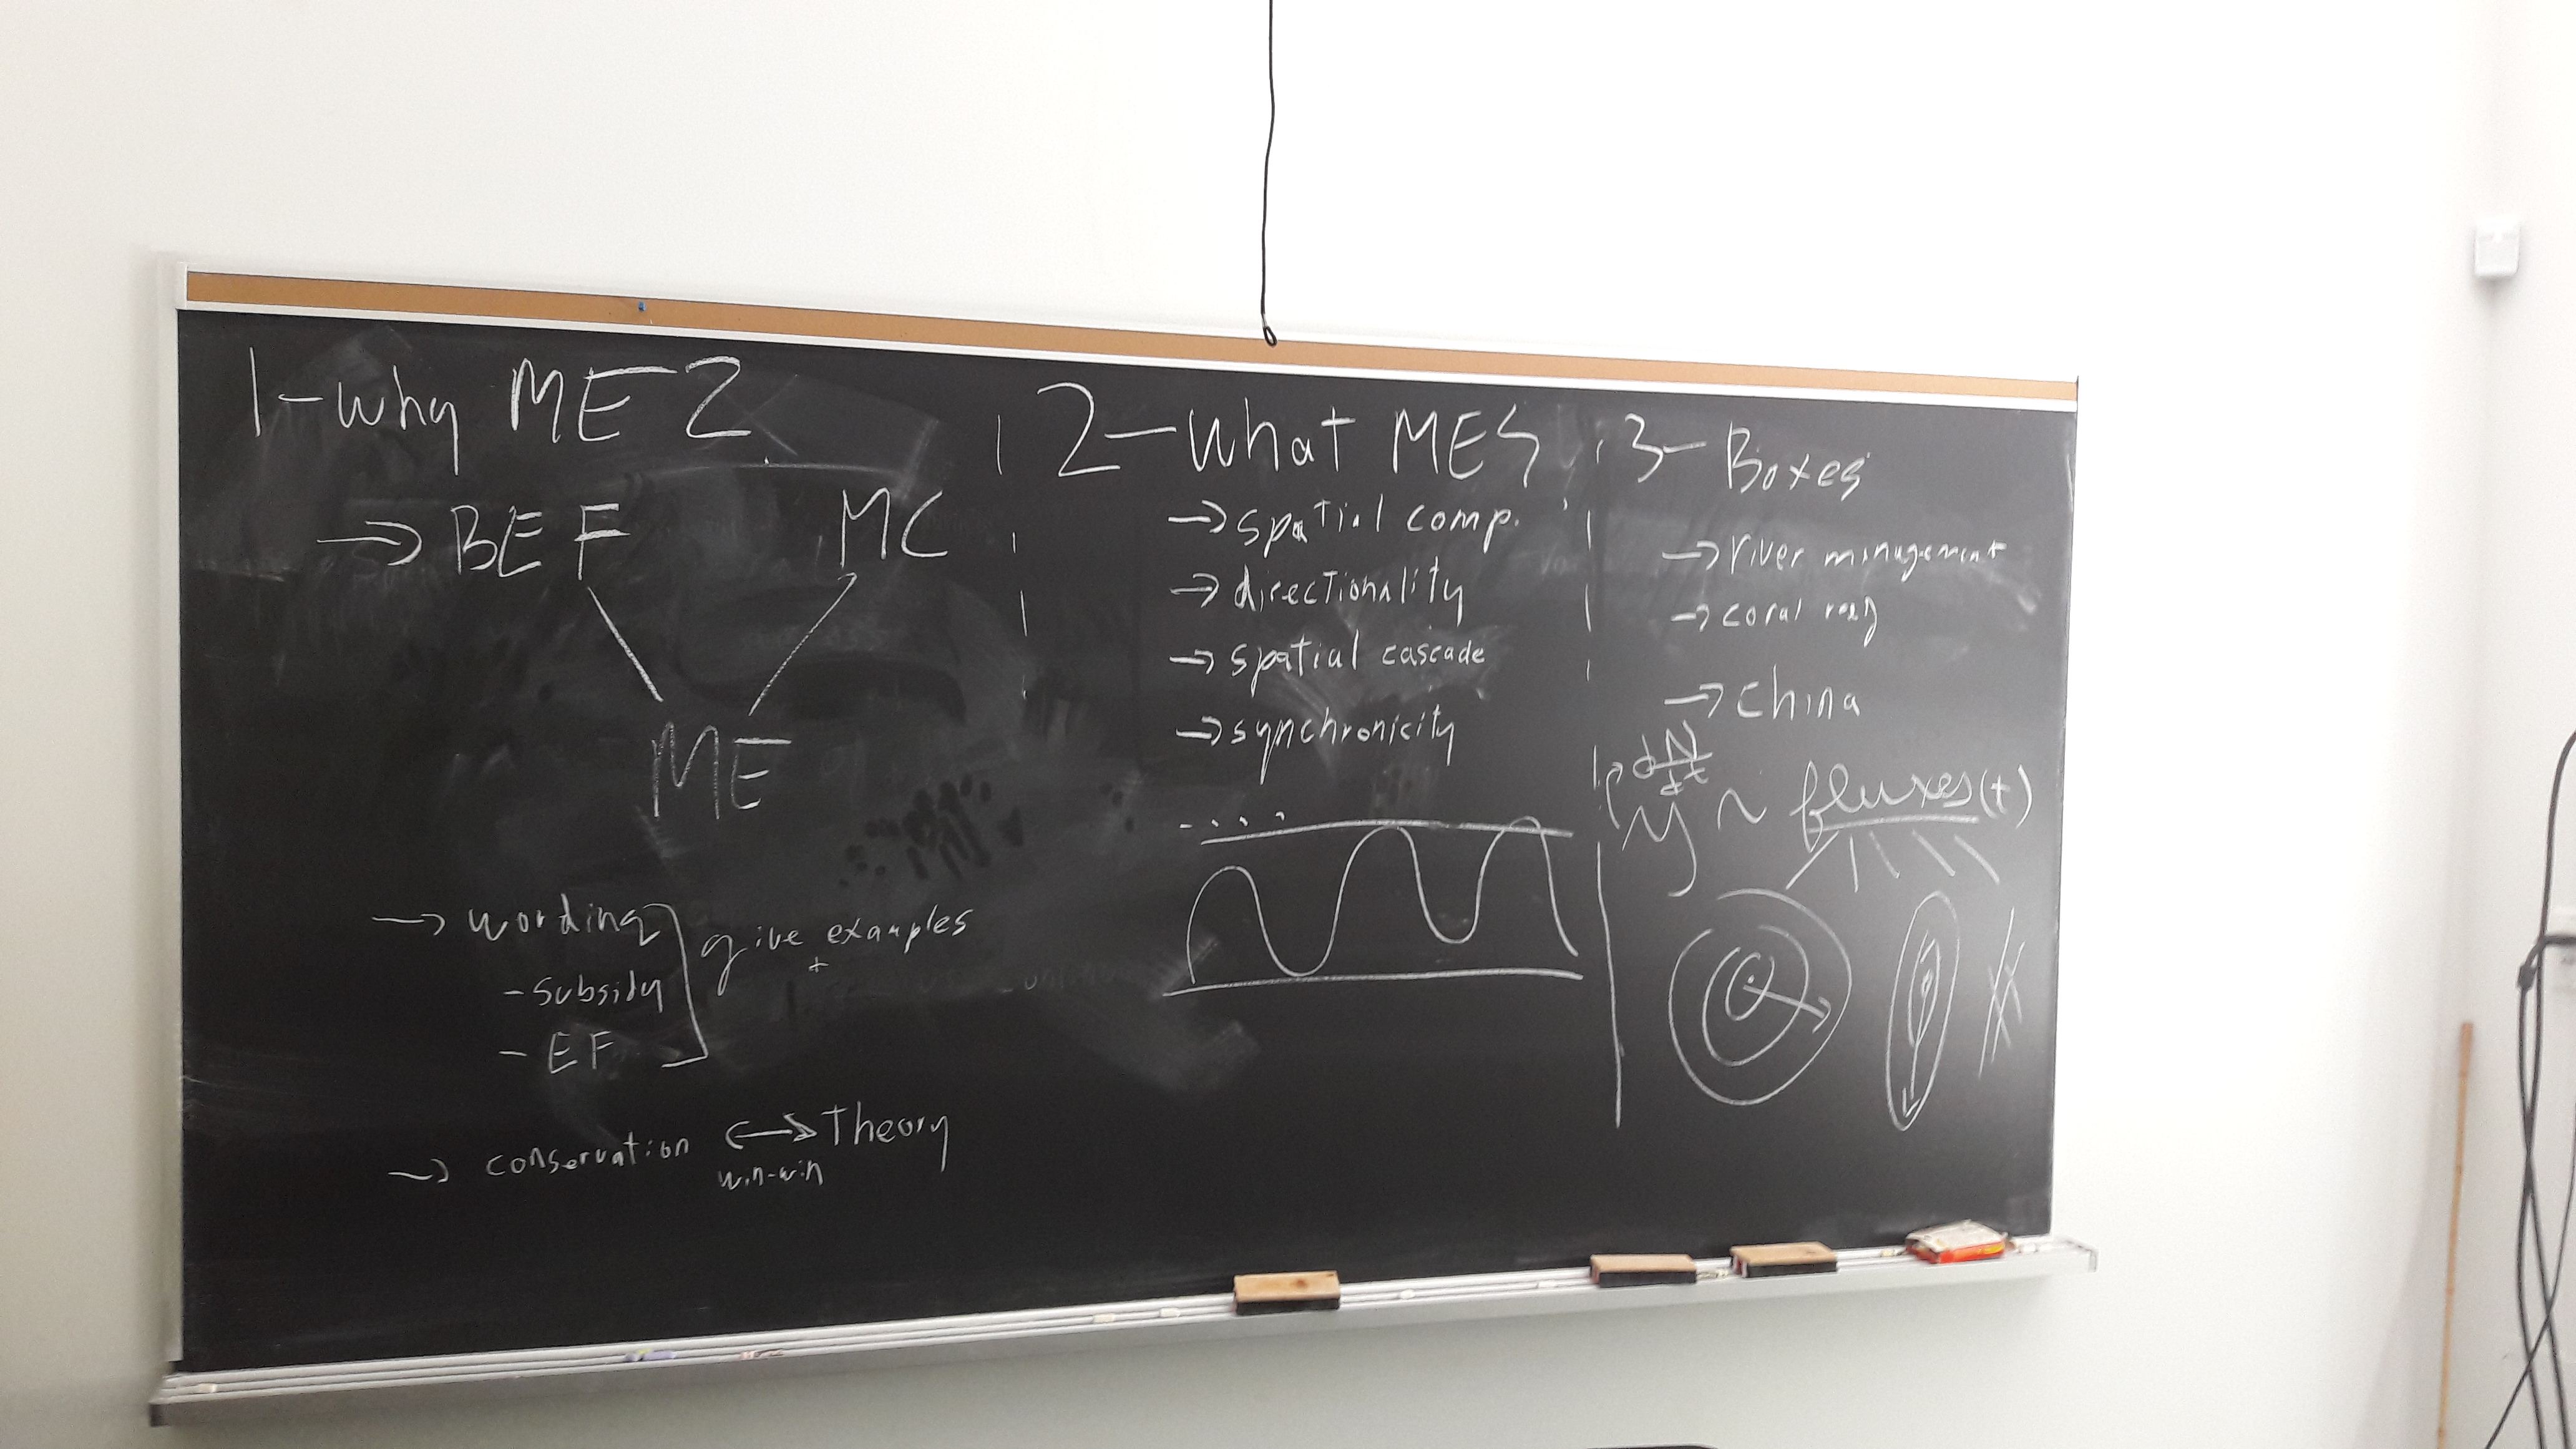 1-why ME?
→ BEF MC
ME
→ wording
- subsidy
- EF
give examples
+
→ conservation ↔ Theory
win-win
2-what MES
→ spatial comp.
→ directionality
→ spatial cascade
→ synchronicity
....
3- Boxes
→ river management
→ coral reef
→ China
→ dN/dt
y ~ fluxes(t)